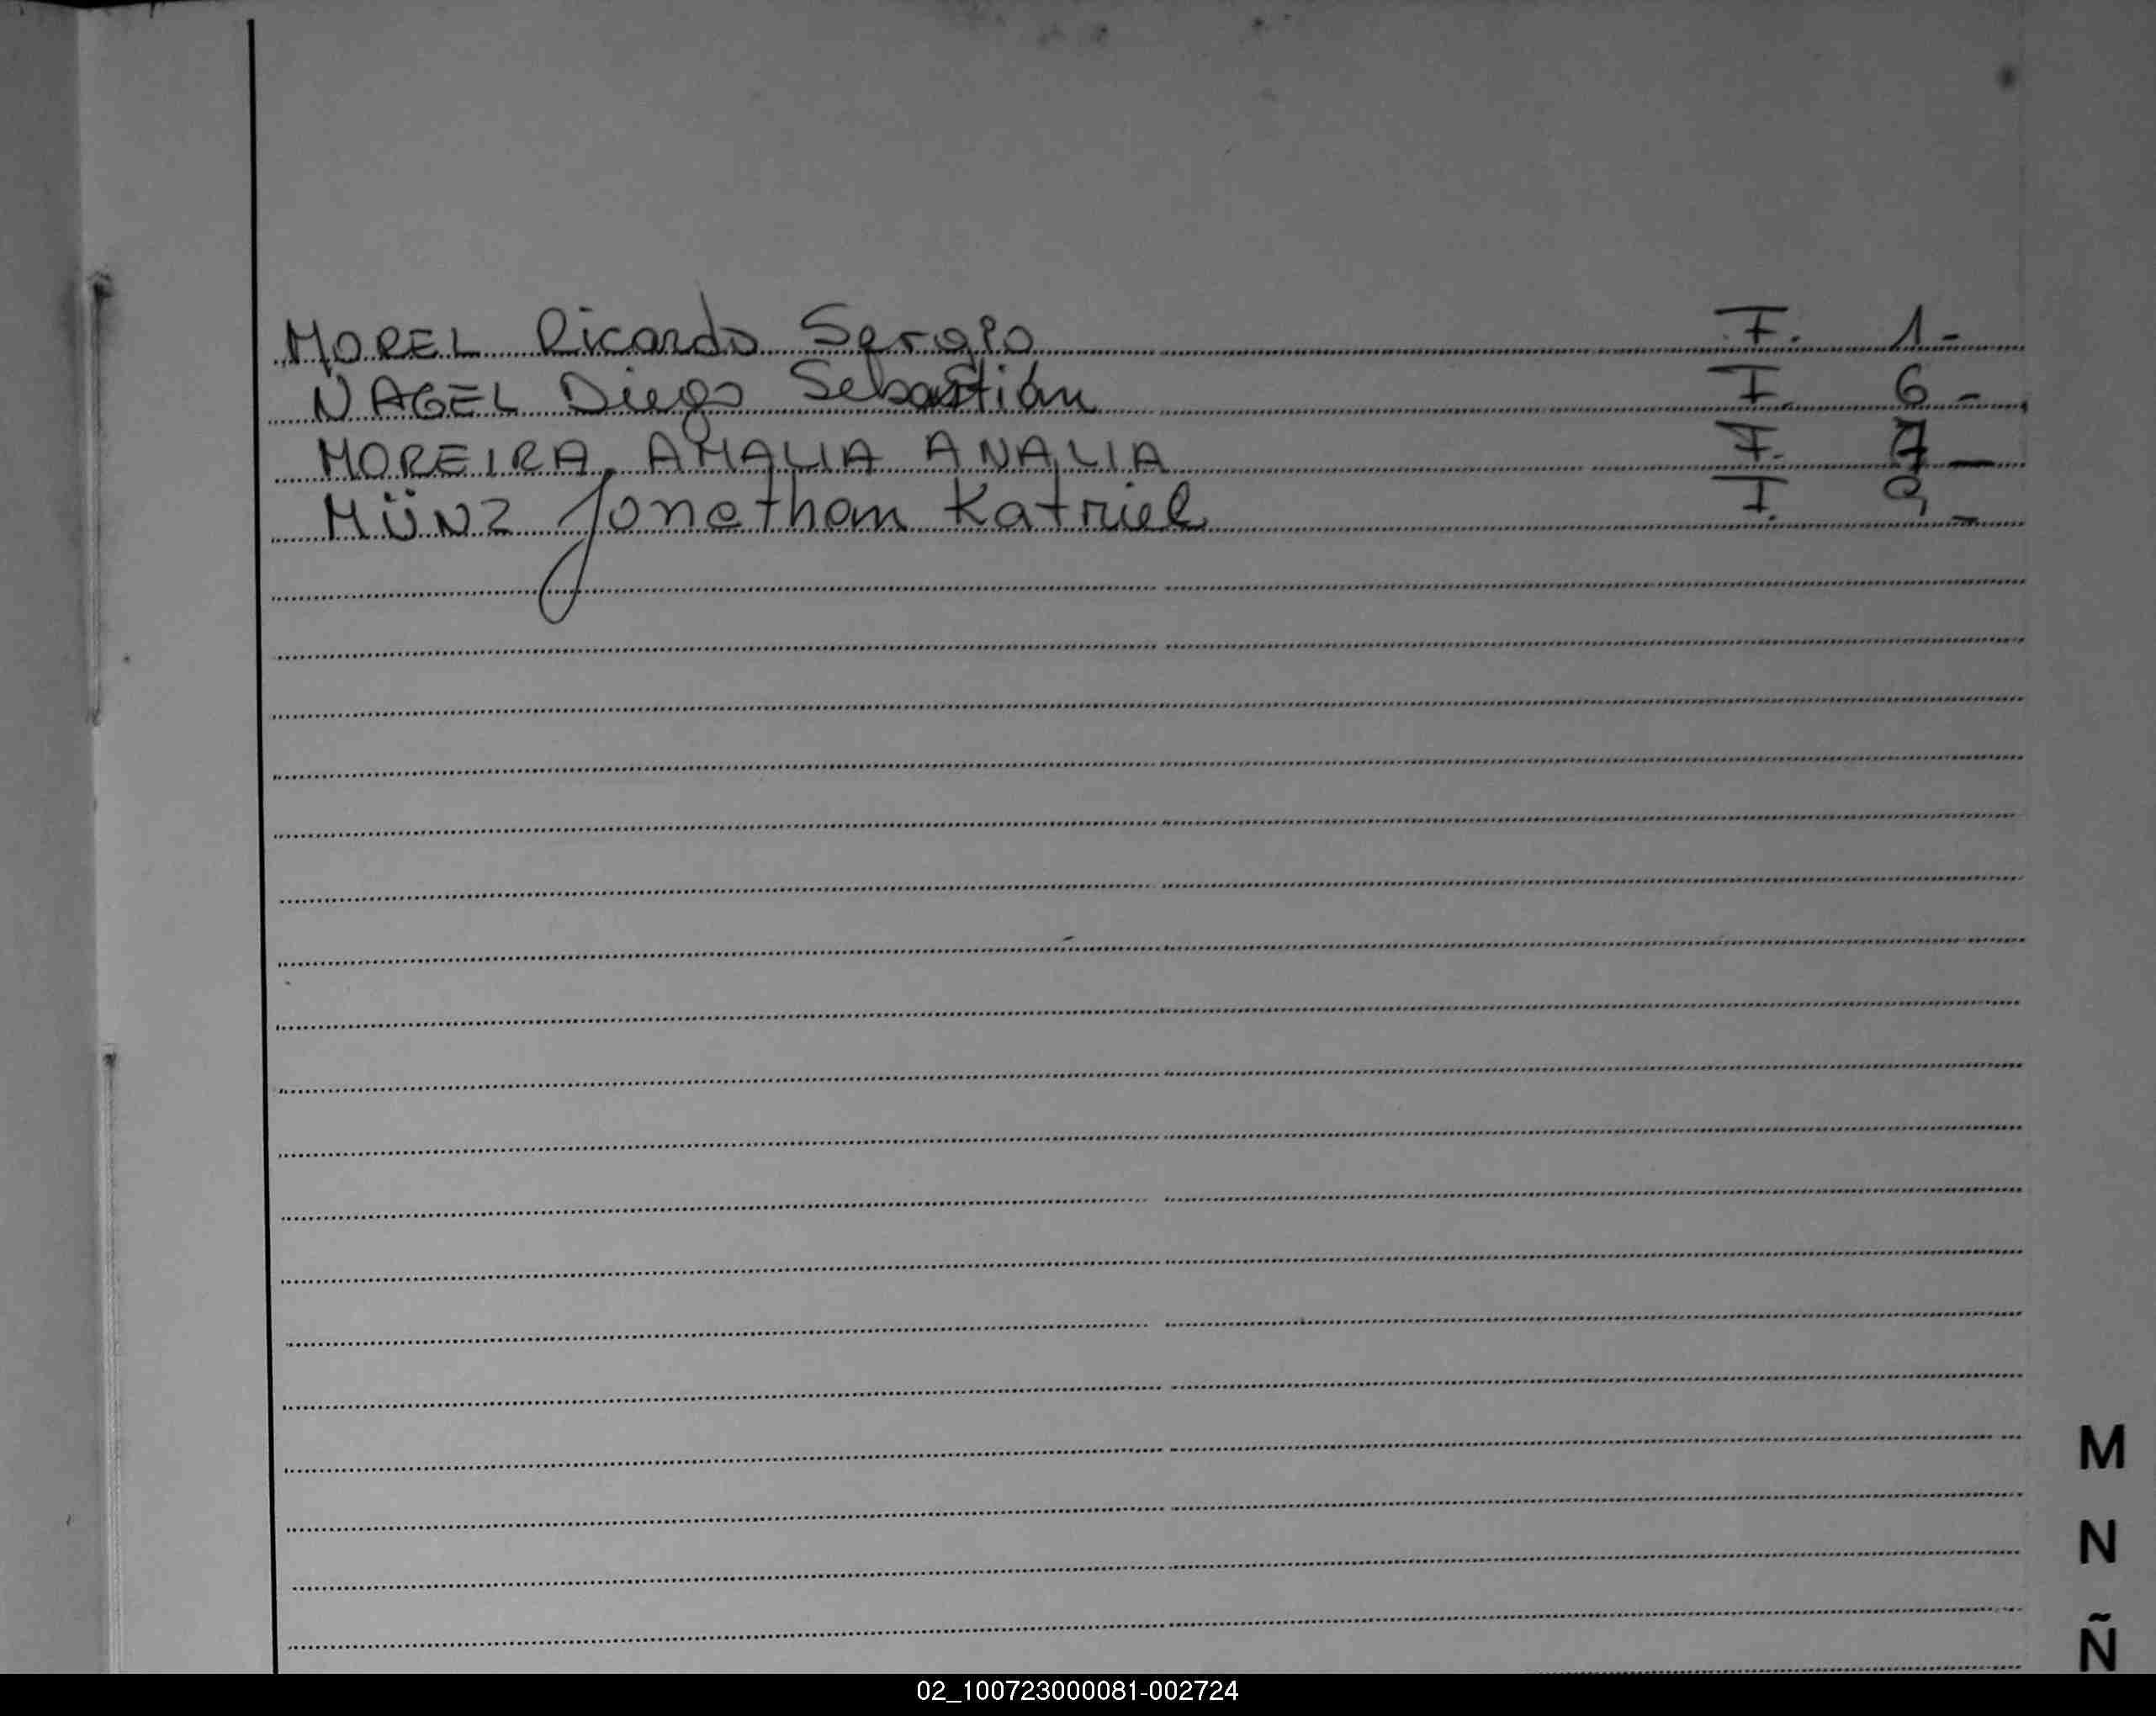 MOREL Ricardo Sergio F. 1-
NAGEL Diego Sebastián F. 6-
MOREIRA, AMALIA ANALIA F. 7-
MÜNZ Jonathan Katriel F. 9-
M
N
Ñ
02_100723000081-002724